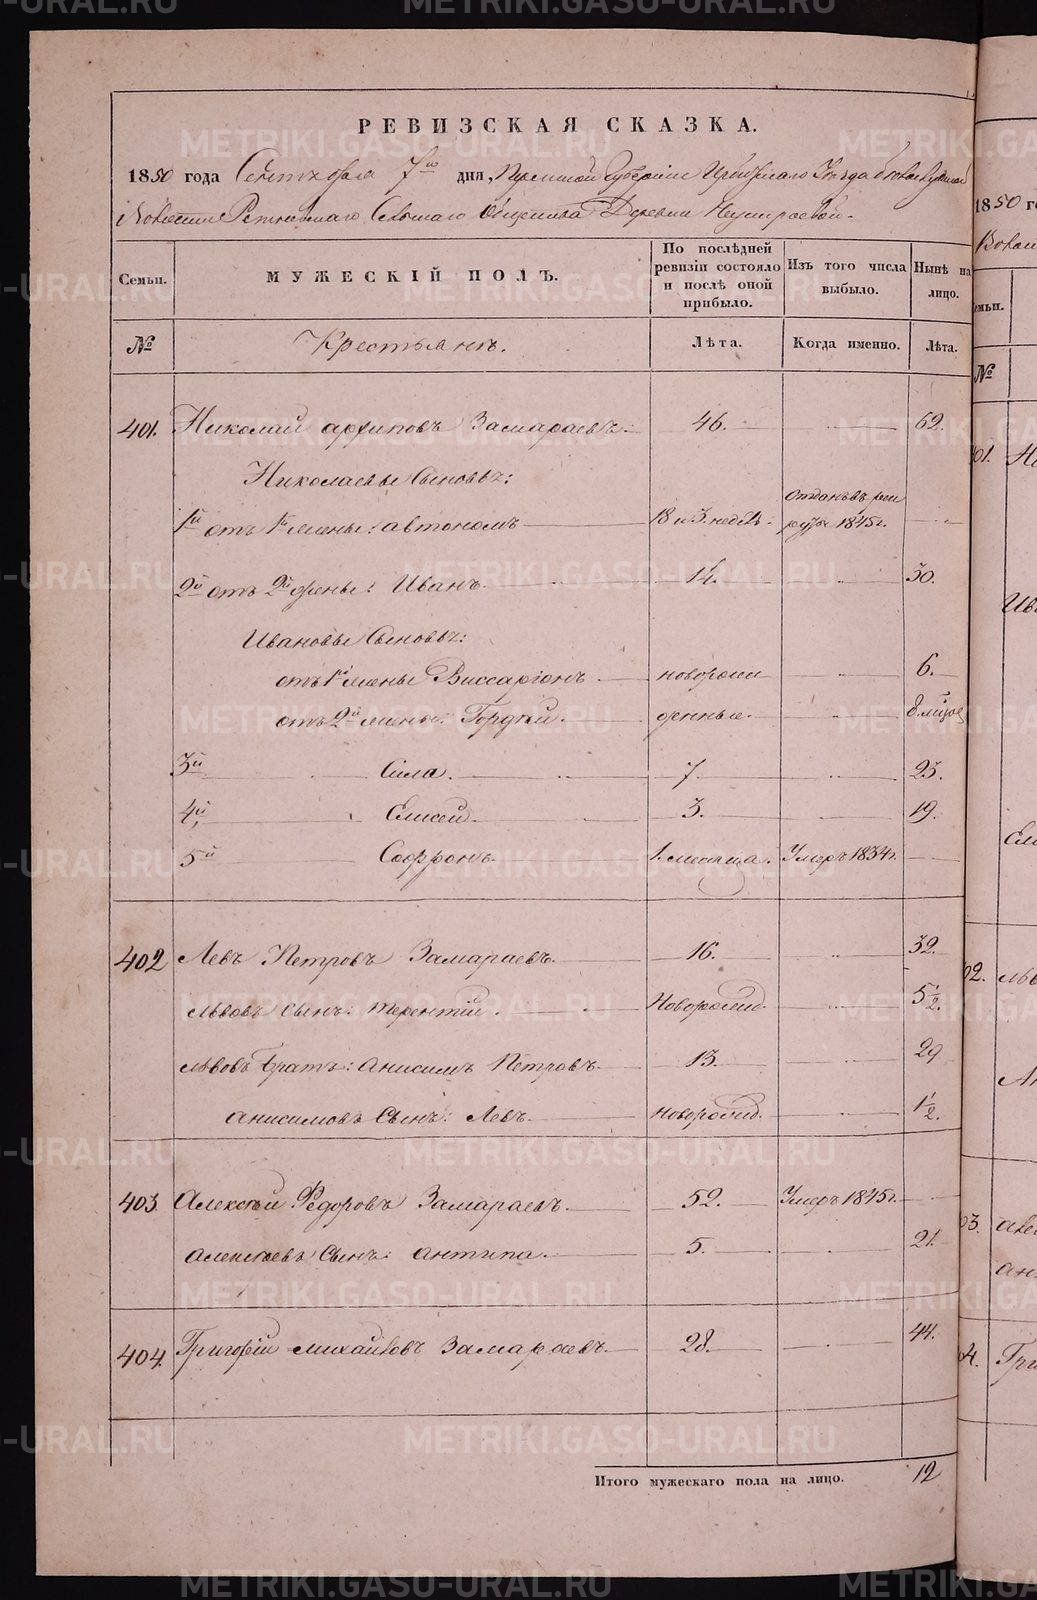 METRIKI.GASO-URAL.RU
РЕВИЗСКАЯ СКАЗКА.
1850 года Сентября 7го дня, Пермской Губернии Ирбитскаго Уезда
Волости Сельскаго Общества Деревни
Семьи.
МУЖЕСКІЙ ПОЛЪ.
По послѣдней ревизіи состояло и послѣ оной прибыло.
Изъ того числа выбыло.
Нынѣ на лицо.
№
Крестьяне.
Лѣта.
Когда именно.
Лѣта.
401. Николай Архиповъ Замараевъ: 46. 62.
Николаевы Сыновья:
1й отъ 1й жены: Автономъ 18 и 3. недѣл. отданъ въ рекруты 1845 г.
2й отъ 2й жены: Иванъ 14. 30.
Ивановы Сыновья:
отъ 1й жены Виссаріонъ новорож 6.
отъ 2й жены: Гордѣй. денные.
3й Сила. 7. 23.
4й Елисей. 3. 19.
5й Софронъ 1. месяца. Умеръ 1834 г.
402 Левъ Петровъ Замараевъ 16. 32.
Львовъ Сынъ: Терентій. Новорожд. 5 1/2.
Львовъ Братъ: Анисимъ Петровъ 13. 29
Анисимовъ Сынъ: Левъ. новорожд. 1 1/2.
403. Алексѣй Федоровъ Замараевъ. 52. Умеръ 1845 г.
Алексѣевъ Сынъ: Антипа. 5. 21.
404. Григорій Михайловъ Замараевъ. 28. 44.
Итого мужескаго пола на лицо. 12